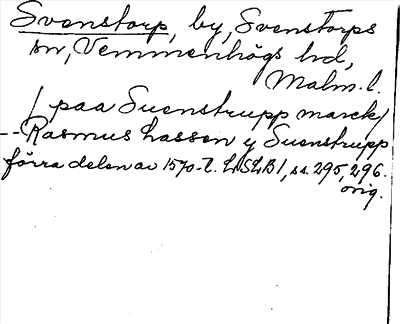 Svenstorp, by, Svenstorps
sn, Vemmenhögs hd,
Malm. l.
/ paa Suenstrupp marck/
-- Rasmus Lassen y Suenstrupp
förra delen av 1570-t. LSLB 1, ss. 295, 296.
orig.